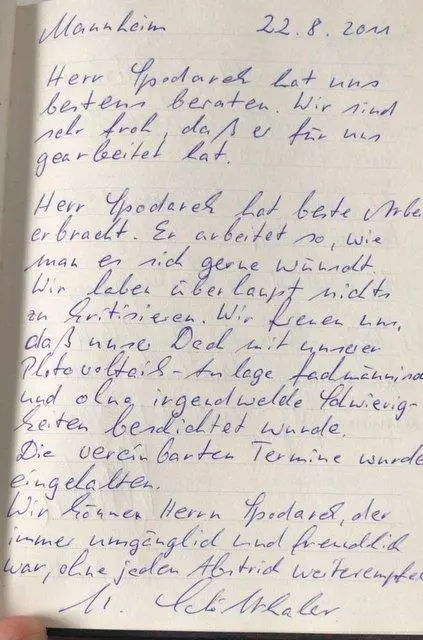 Mannheim 22.8.2011
Herr Spodarek hat uns
bestens beraten. Wir sind
sehr froh, daß er für uns
gearbeitet hat.
Herr Spodarek hat beste Arbe
erbracht. Er arbeitet so, wie
man es sich gerne wünscht.
Wir haben überhaupt nichts
zu kritisieren. Wir freuen uns,
daß unser Dach mit unserer
Photovoltaik-Anlage fachmännisc
und ohne irgendwelche Schwierig-
keiten beschichtet wurde.
Die vereinbarten Termine wurde
eingehalten.
Wir können Herrn Spodarek, der
immer umgänglich und freundlich
war, ohne jeden Abstrich weiterempfe